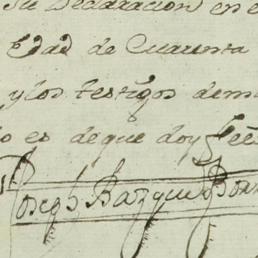 su Declaracion en e
Edad de Cuarenta
y los testigos dem
o es de que doy fee
Joseph Bazquez Bor